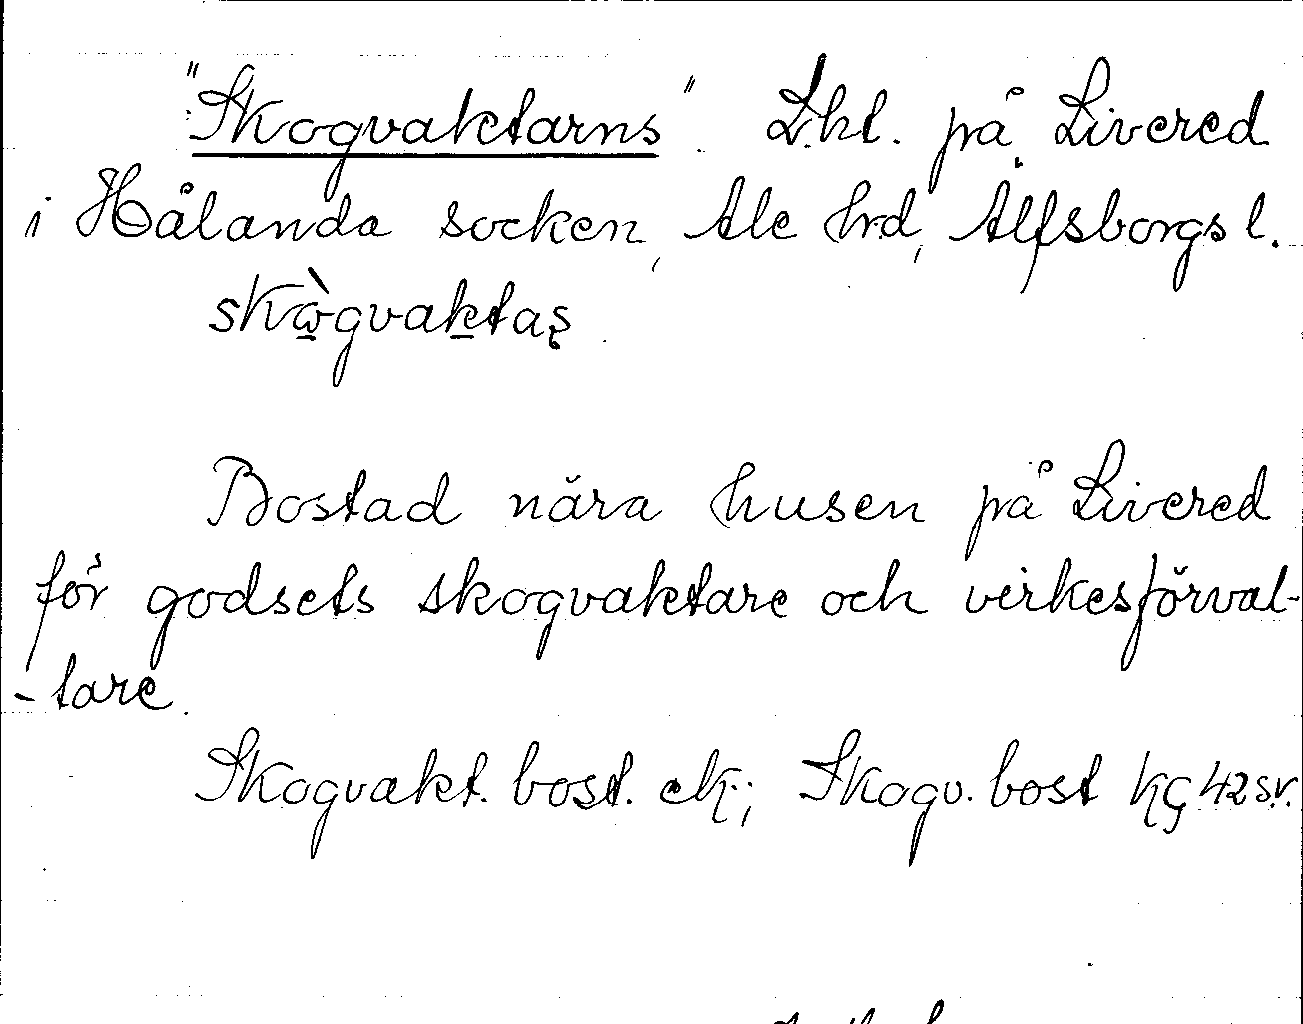 "Skogvaktarns". Lht. på Livered
i Hålanda socken, Ale hrd, Älfsborgs l.
skὼgvaktaş
Bostad nära husen på Livered
för godsets skogvaktare och virkesförval-
-tare.
Skogvakt. bost. ek.; Skogv. bost kç 42 s.v.